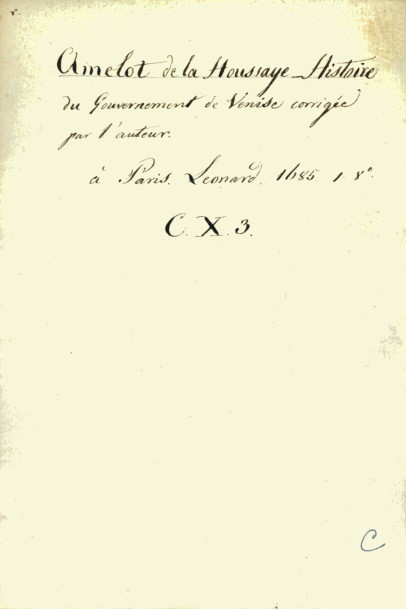 Amelot de la Houssaye Histoire
du Gouvernement de Venise corrigée
par l'auteur.
à Paris. Leonard. 1685. 1. 8°.
C. X. 3.
C